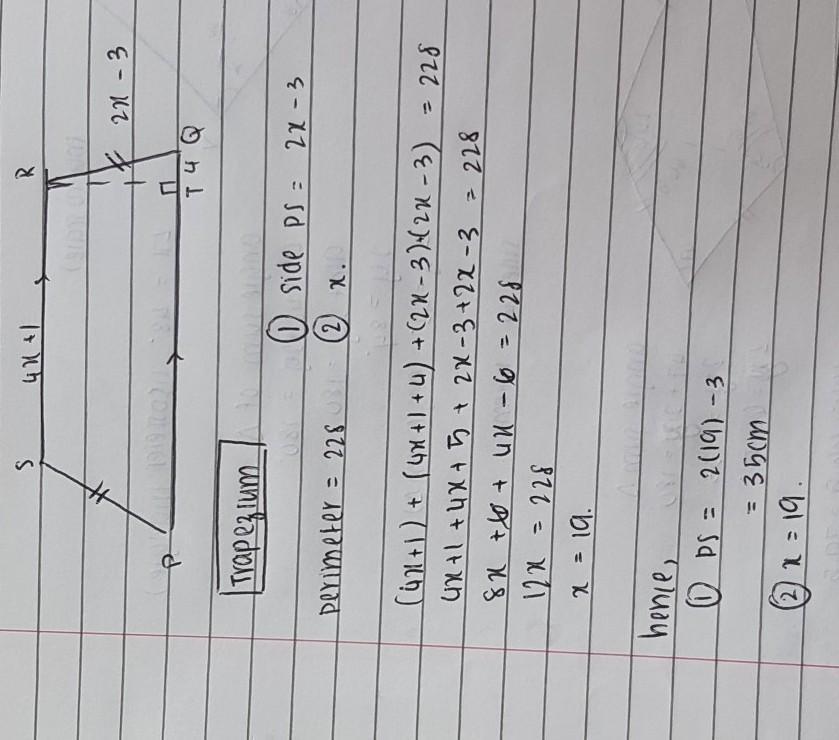 S 4x+1 R
2x-3
P T 4 Q
Trapezium ① side PS = 2x-3
perimeter = 228 ② x.
(4x+1) + (4x+1+4) + (2x-3)+(2x-3) = 228
4x+1+4x+5+2x-3+2x-3 = 228
8x+6+4x-6 = 228
12x = 228
x = 19.
hence,
① PS = 2(19)-3
= 35cm
② x = 19.